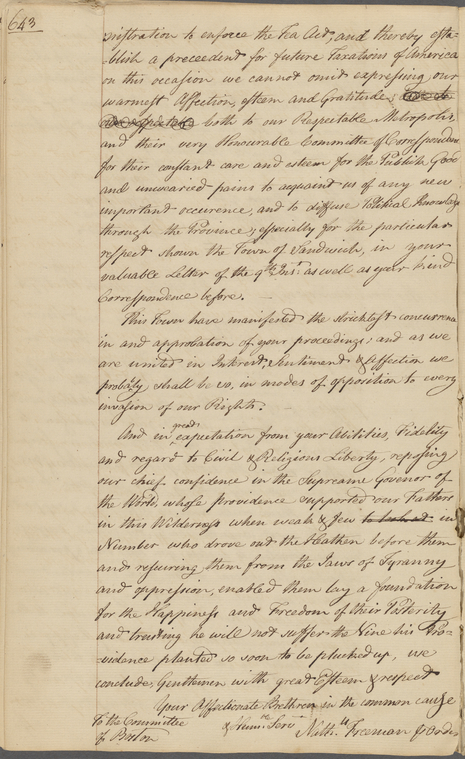 643
nistration to enforce the Tea Act, and thereby esta-
blish a preceedent for future Taxations of America
on this occasion we cannot omit expressing our
warmest Affection, esteem and Gratitude,
both to our Respectable Metropolis,
and their very Honourable Committee of Correspondence
for their constant care and esteem for the Publick Good
and unwearied pains to acquaint us of any new
important occurence, and to diffuse Political Knowledge
through the Province; especially for the particular
respect shown the Town of Sandwich, in your
valuable Letter of the 9th Inst. as well as your kind
Correspondence before. —
This Town have manifested the strictest concurrence
in and approbation of your proceedings; and as we
are united in Interest, Sentiment & affection we
probably shall be so, in modes of opposition to every
invasion of our Rights. —
And in great expectation from your Abilities, Fidelity
and regard to Civil & Religious Liberty, reposing
our chief confidence in the Supreme Govenor of
the World, whose Providence supported our Fathers
in this Wilderness when weak & few in
Number who drove out the Heathen before them
and rescuring them from the Jaws of Tyranny
and oppression, enabled them lay a foundation
for the Happiness and Freedom of their Posterity
and trusting he will not suffer the Vine his Pro-
-vidence planted so soon to be plucked up, we
conclude, Gentlemen with great Esteem & respect
Your Affectionate Brethren in the common cause
To the Committee & Hum.e Serv.ts Nath.l Freeman
of Boston